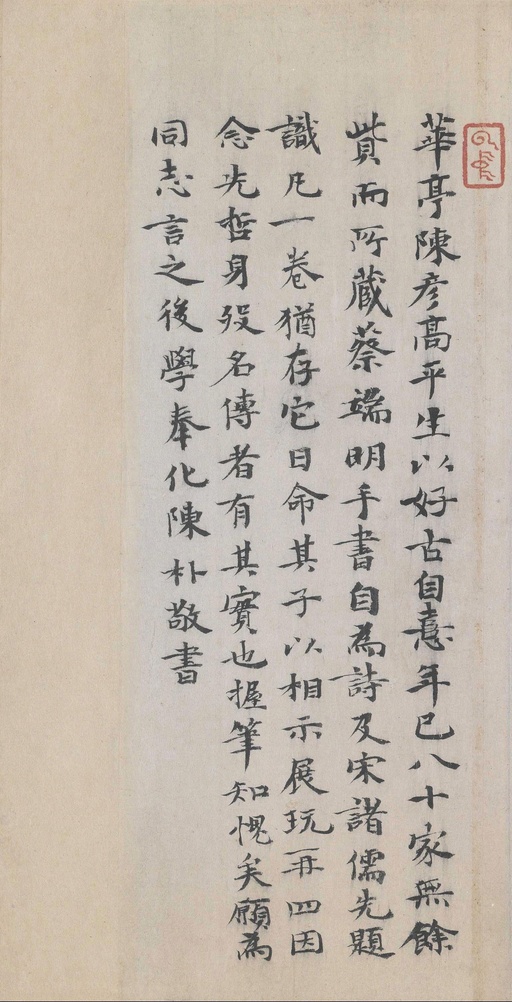 華亭陳彥高平生以好古自憙年已八十家無餘
貲而所藏蔡端明手書自為詩及宋諸儒先題
識凡一卷猶存它日命其子以相示展玩再四因
念先哲身歿名傳者有其實也握筆知愧矣願為
同志言之後學奉化陳朴敬書